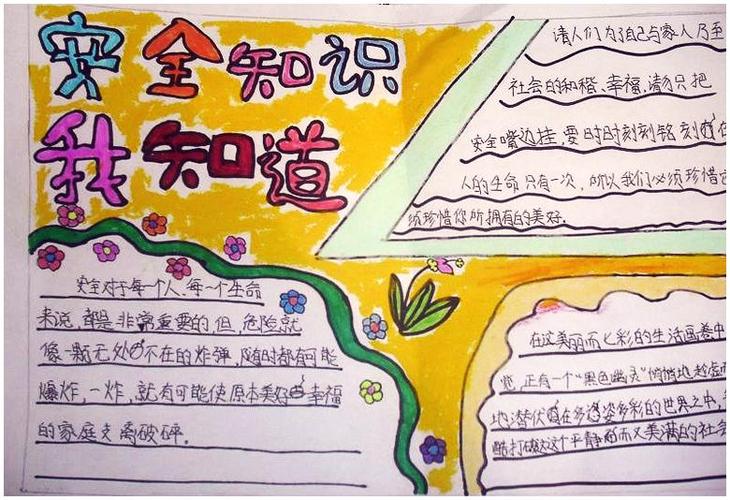 安全知识
我知道
请人们为了自己与家人乃至
社会的和稽、幸福,请勿只把
安全嘴边挂,要时时刻刻铭刻在
人的生命只有一次,所以我们必须珍惜
须珍惜您所拥有的美好.
安全对于每个人、每一个生命
来说,都是非常重要的,但,危险就
像一颗无处不在的炸弹,随时都有可能
爆炸,一炸,就有可能使原本美好幸福
的家庭支离破碎.
在这美丽而七彩的生活画卷中
览,正有一个“黑色幽灵”悄悄地
地潜伏在多姿多彩的世界之中,
酷打破这个平静而又美满的社会